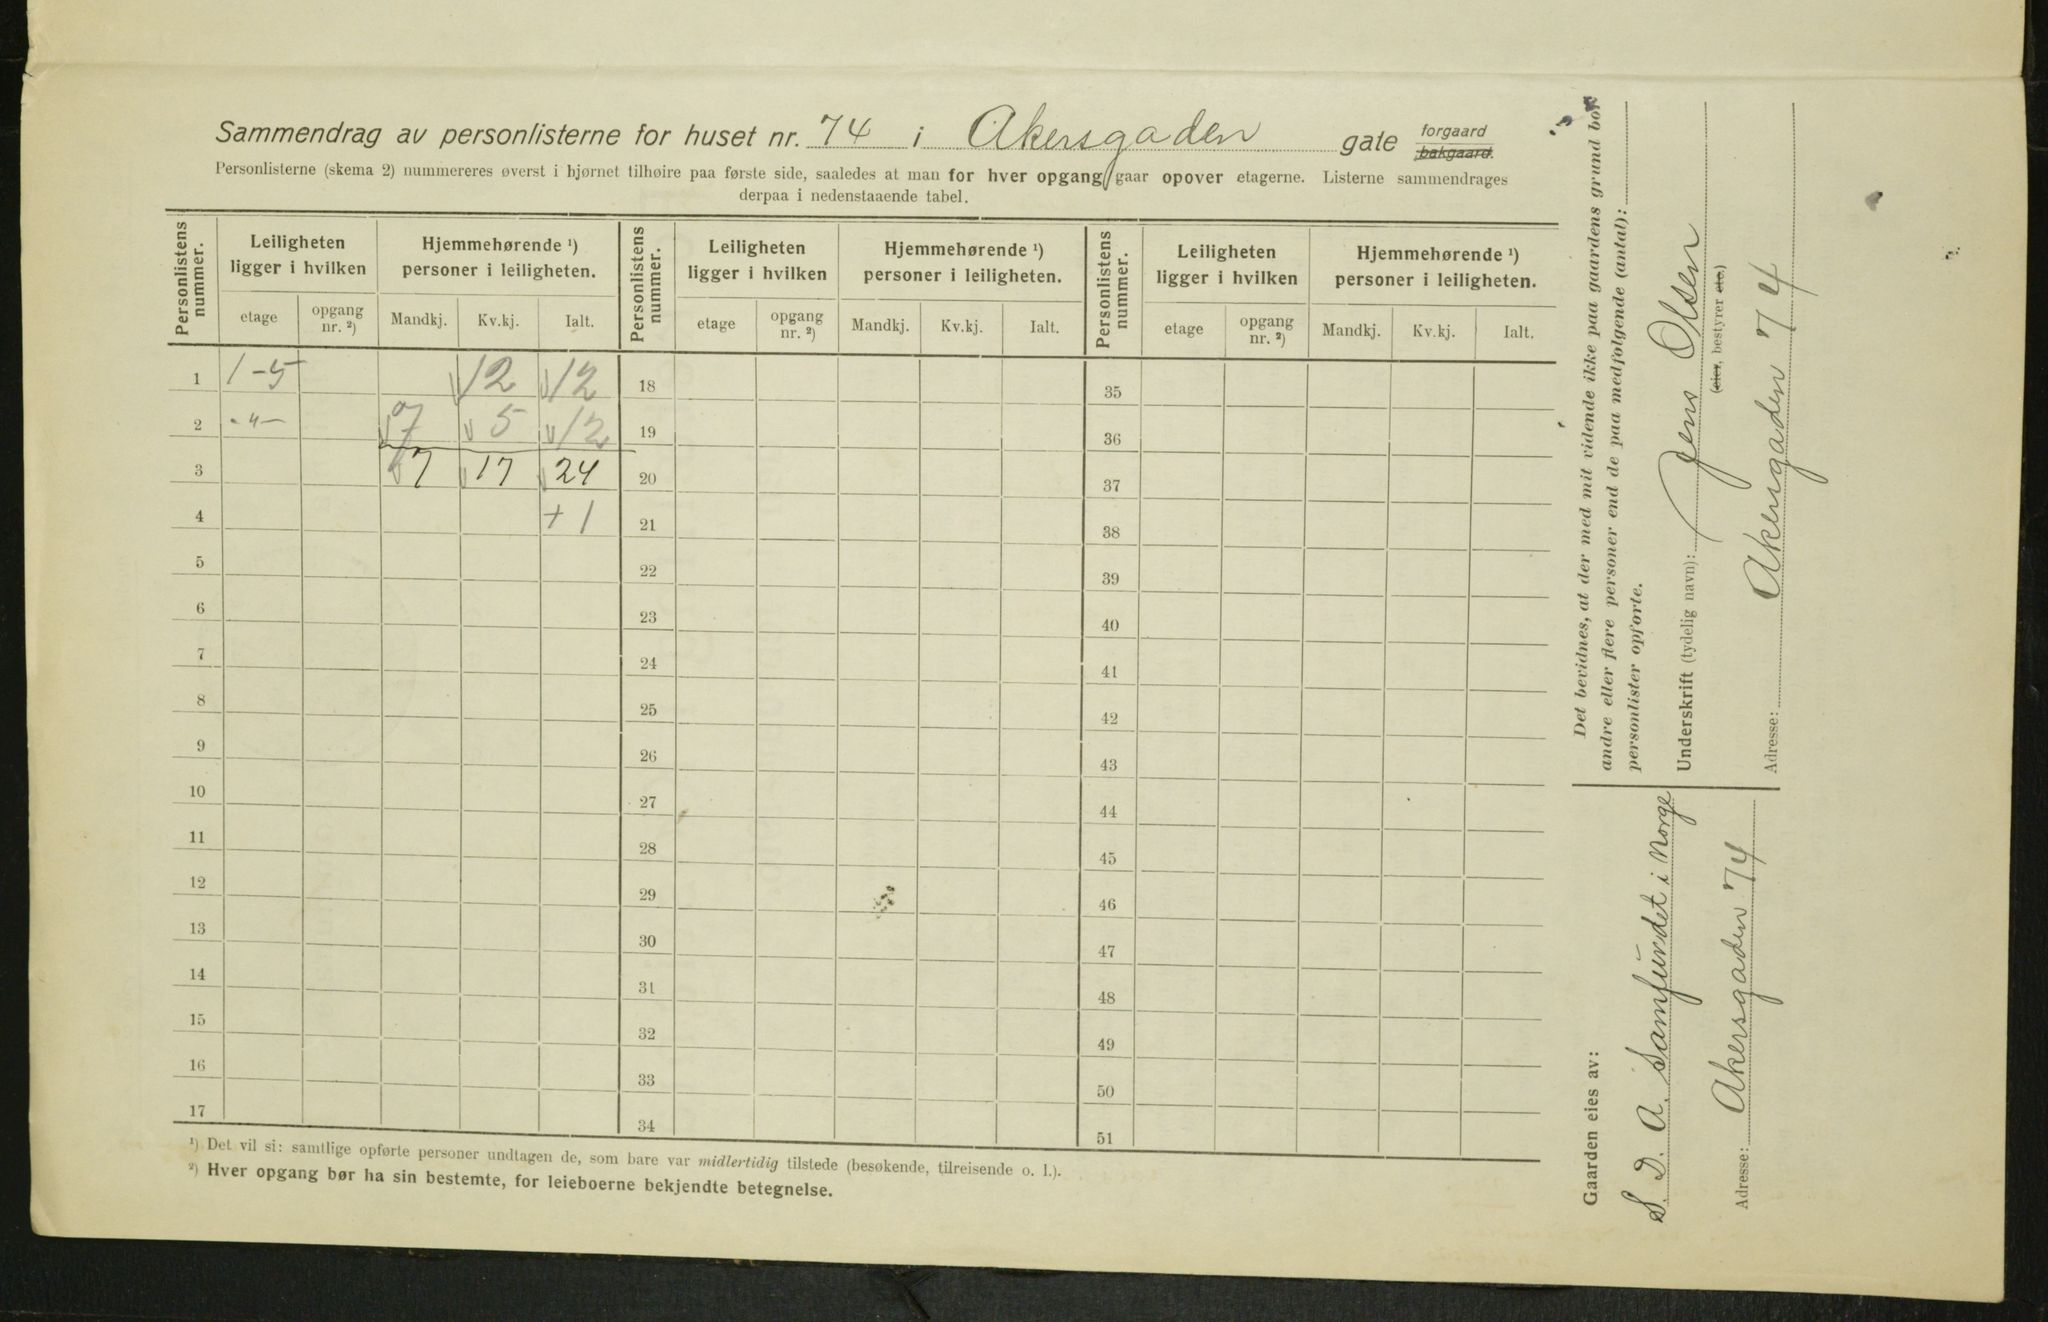 Sammendrag av personlisterne for huset nr. 74 i Akersgaden gate forgaard bakgaard.
Personlisterne (skema 2) nummereres øverst i hjørnet tilhøire paa første side, saaledes at man for hver opgang gaar opover etagerne. Listerne sammendrages
derpaa i nedenstaaende tabel.
Personlistens nummer. Leiligheten ligger i hvilken Hjemmehørende ¹) personer i leiligheten. Personlistens nummer. Leiligheten ligger i hvilken Hjemmehørende ¹) personer i leiligheten. Personlistens nummer. Leiligheten ligger i hvilken Hjemmehørende ¹) personer i leiligheten.
etage opgang nr. ²) Mandkj. Kv.kj. Ialt. etage opgang nr. ²) Mandkj. Kv.kj. Ialt. etage opgang nr. ²) Mandkj. Kv.kj. Ialt.
1 1-5 12 12 18 35
2 -"- 7 5 12 19 36
3 7 17 24 20 37
4 +1 21 38
5 22 39
6 23 40
7 24 41
8 25 42
9 26 43
10 27 44
11 28 45
12 29 46
13 30 47
14 31 48
15 32 49
16 33 50
17 34 51
¹) Det vil si: samtlige opførte personer undtagen de, som bare var midlertidig tilstede (besøkende, tilreisende o. l.).
²) Hver opgang bør ha sin bestemte, for leieboerne bekjendte betegnelse.
Det bevidnes, at der med mit vidende ikke paa gaardens grund bor
andre eller flere personer end de paa medfølgende (antal):
personlister opførte.
Underskrift (tydelig navn): Jens Olsen
(eier, bestyrer etc.)
Adresse: Akersgaden 74
Gaarden eies av:
S. D. A. Samfundet i Norge
Adresse: Akersgaden 74